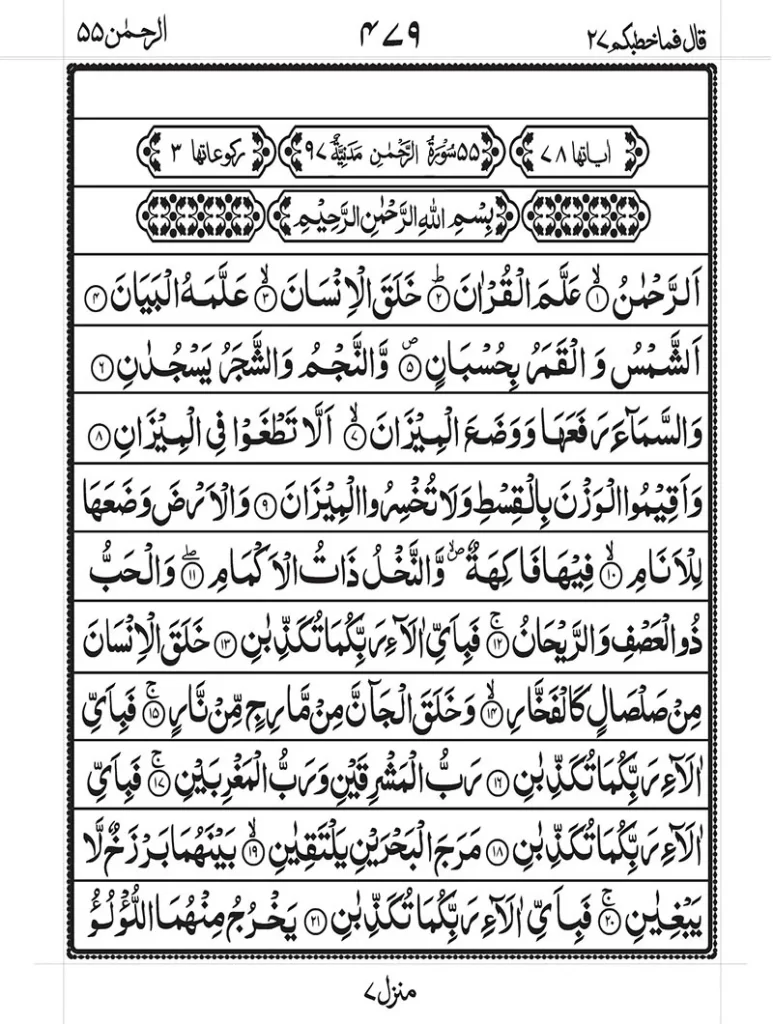 قال فماخطبکم ۲۷ ۴۷۹ الرحمٰن ۵۵
اٰیاتها ۷۸ ۵۵ سُوْرَةُ الرَّحْمٰنِ مَدَنِيَّةٌ ۹۷ رکوعاتها ۳
بِسْمِ اللهِ الرَّحْمٰنِ الرَّحِيْمِ
اَلرَّحْمٰنُ ۙ﴿۱﴾ عَلَّمَ الْقُرْاٰنَ ؕ﴿۲﴾ خَلَقَ الْاِنْسَانَ ۙ﴿۳﴾ عَلَّمَهُ الْبَيَانَ ﴿۴﴾
اَلشَّمْسُ وَ الْقَمَرُ بِحُسْبَانٍ ۪﴿۵﴾ وَّالنَّجْمُ وَالشَّجَرُ يَسْجُدٰنِ ﴿۶﴾
وَالسَّمَآءَ رَفَعَهَا وَوَضَعَ الْمِيْزَانَ ۙ﴿۷﴾ اَلَّا تَطْغَوْا فِى الْمِيْزَانِ ﴿۸﴾
وَاَقِيْمُوا الْوَزْنَ بِالْقِسْطِ وَلَا تُخْسِرُوا الْمِيْزَانَ ﴿۹﴾ وَالْاَرْضَ وَضَعَهَا
لِلْاَنَامِ ۙ﴿۱۰﴾ فِيْهَا فَاكِهَةٌ ۪ۙ وَّالنَّخْلُ ذَاتُ الْاَكْمَامِ ۖ﴿۱۱﴾ وَالْحَبُّ
ذُو الْعَصْفِ وَالرَّيْحَانُ ۚ﴿۱۲﴾ فَبِاَىِّ اٰلَآءِ رَبِّكُمَا تُكَذِّبٰنِ ﴿۱۳﴾ خَلَقَ الْاِنْسَانَ
مِنْ صَلْصَالٍ كَالْفَخَّارِ ۙ﴿۱۴﴾ وَخَلَقَ الْجَآنَّ مِنْ مَّارِجٍ مِّنْ نَّارٍ ۚ﴿۱۵﴾ فَبِاَىِّ
اٰلَآءِ رَبِّكُمَا تُكَذِّبٰنِ ﴿۱۶﴾ رَبُّ الْمَشْرِقَيْنِ وَرَبُّ الْمَغْرِبَيْنِ ۚ﴿۱۷﴾ فَبِاَىِّ
اٰلَآءِ رَبِّكُمَا تُكَذِّبٰنِ ﴿۱۸﴾ مَرَجَ الْبَحْرَيْنِ يَلْتَقِيٰنِ ۙ﴿۱۹﴾ بَيْنَهُمَا بَرْزَخٌ لَّا
يَبْغِيٰنِ ۚ﴿۲۰﴾ فَبِاَىِّ اٰلَآءِ رَبِّكُمَا تُكَذِّبٰنِ ﴿۲۱﴾ يَخْرُجُ مِنْهُمَا اللُّؤْلُؤُ
منزل ۷